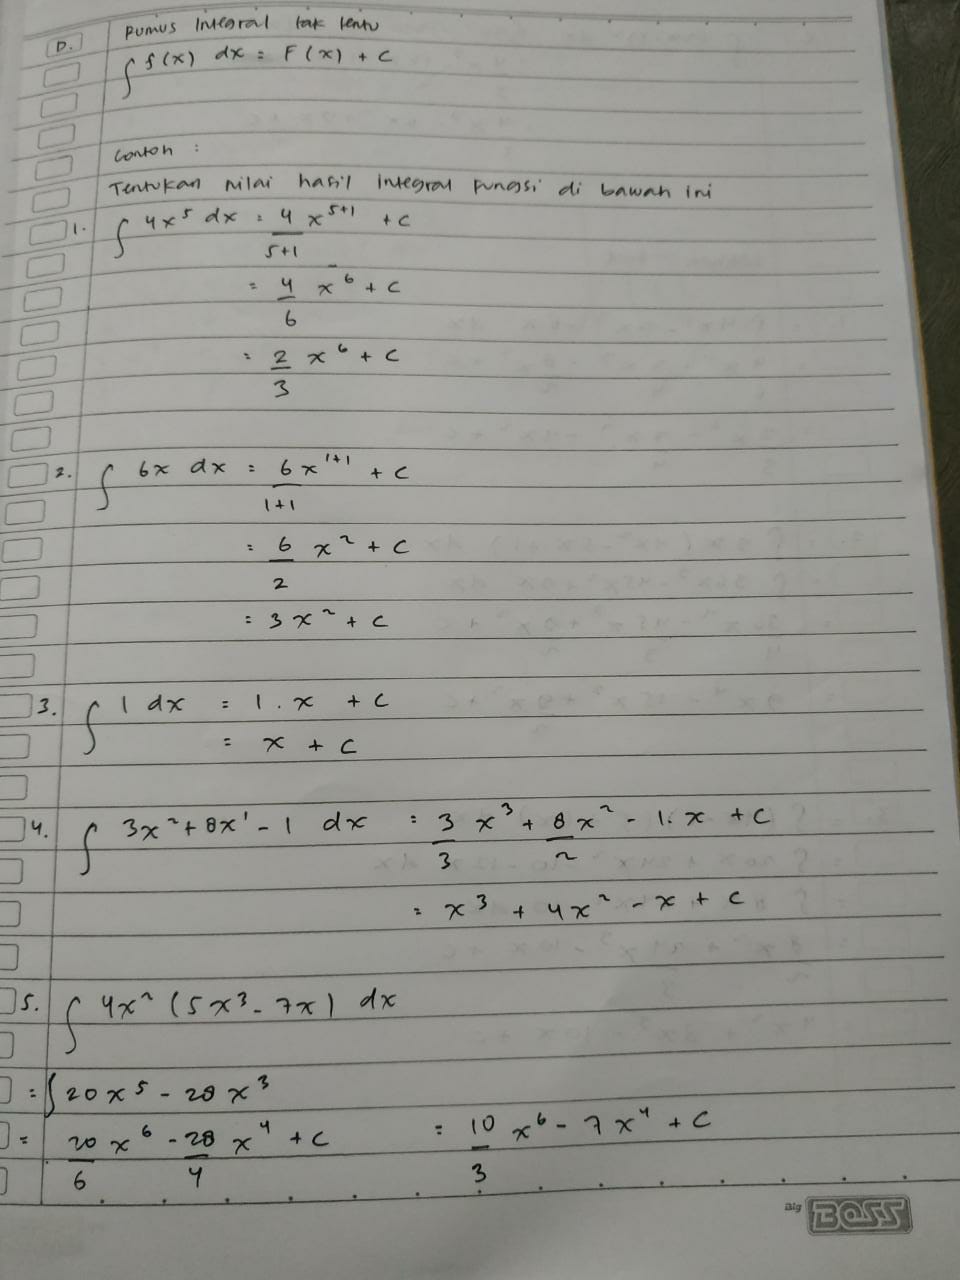 D. Rumus Integral tak tentu
∫ f(x) dx = F(x) + c
Contoh :
Tentukan nilai hasil integral fungsi di bawah ini
1. ∫ 4x⁵ dx = 4/(5+1) x⁵⁺¹ + c
= 4/6 x⁶ + c
= 2/3 x⁶ + c
2. ∫ 6x dx = 6/(1+1) x¹⁺¹ + c
= 6/2 x² + c
= 3x² + c
3. ∫ 1 dx = 1 . x + c
= x + c
4. ∫ 3x² + 8x¹ - 1 dx = 3/3 x³ + 8/2 x² - 1. x + c
= x³ + 4x² - x + c
5. ∫ 4x² (5x³ - 7x) dx
= ∫ 20x⁵ - 28x³
= 20/6 x⁶ - 28/4 x⁴ + c = 10/3 x⁶ - 7x⁴ + c
Big BOSS